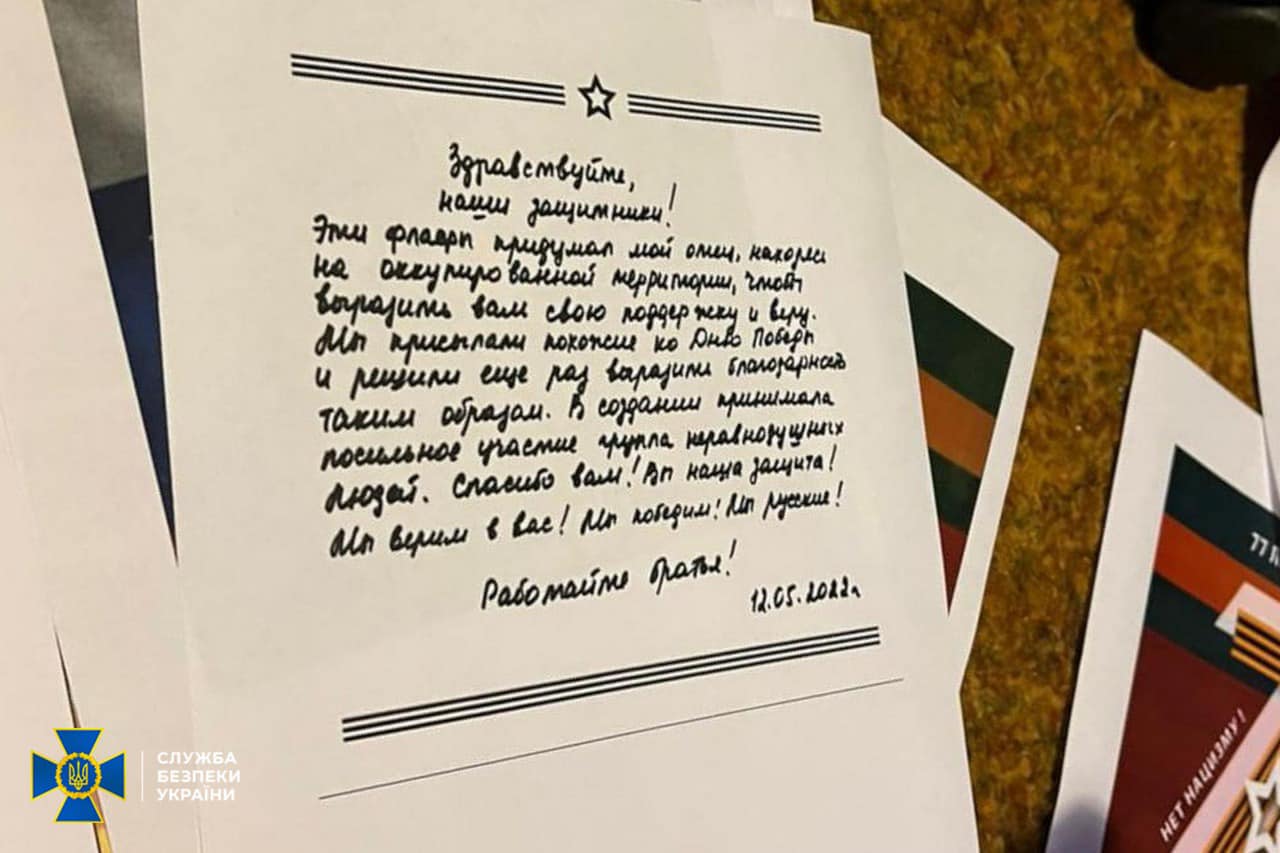 Здравствуйте,
наши защитники!
Эти флаеры придумал мой отец, находясь
на оккупированной территории, чтобы
выразить вам свою поддержку и веру.
Мы присылали похожие ко Дню Победы
и решили еще раз выразить благодарность
таким образом. В создании принимала
посильное участие группа неравнодушных
людей. Спасибо вам! Вы наша защита!
Мы верим в вас! Мы победим! Мы русские!
Работайте братья!
12.05.2022г.
77
НЕТ НАЦИЗМУ!
СЛУЖБА
БЕЗПЕКИ
УКРАЇНИ